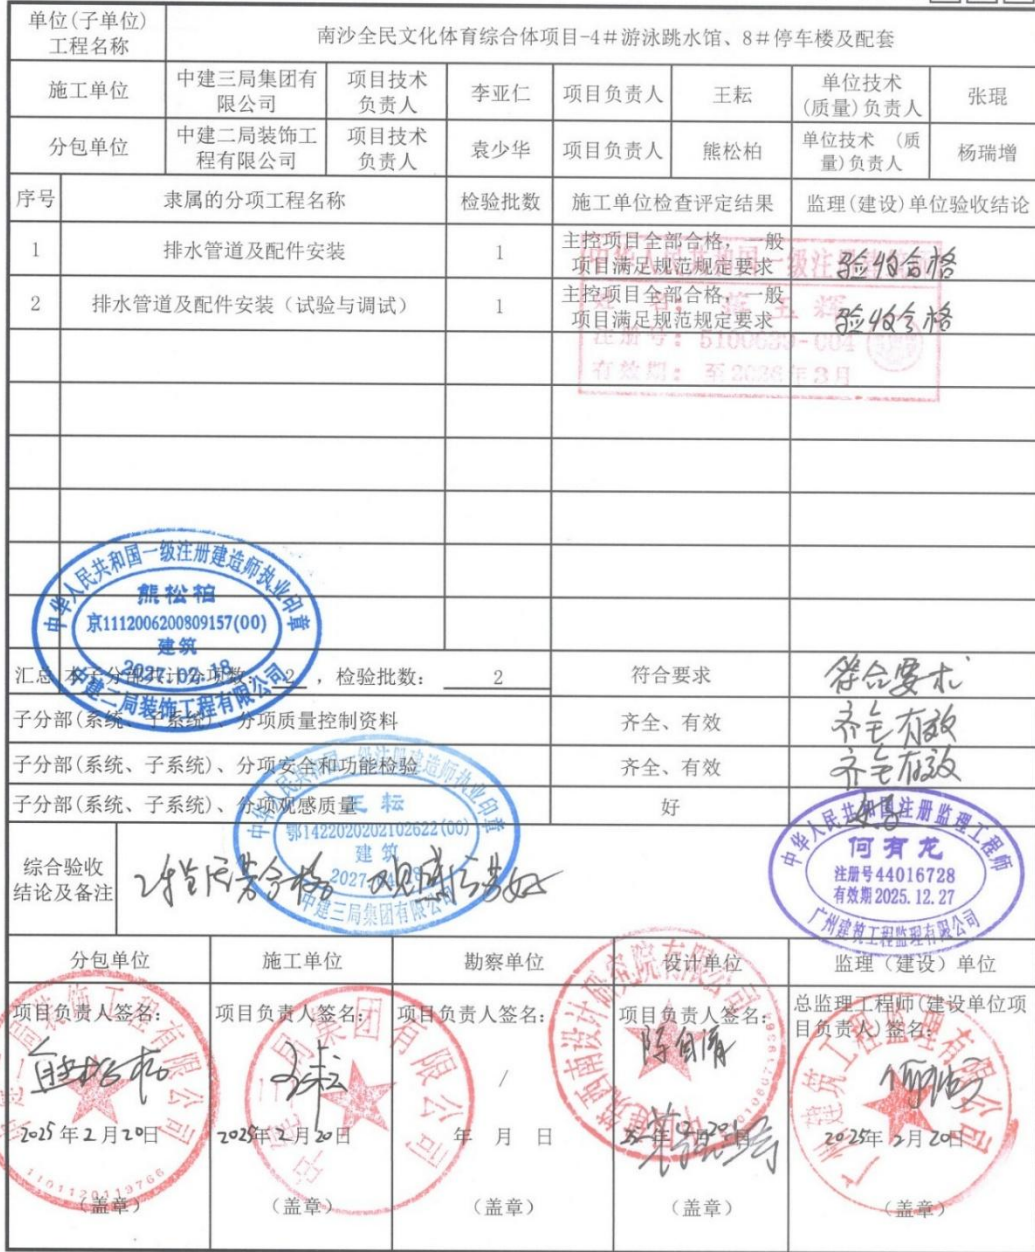 单位(子单位)
工程名称
南沙全民文化体育综合体项目-4#游泳跳水馆、8#停车楼及配套
施工单位
中建三局集团有
限公司
项目技术
负责人
李亚仁
项目负责人
王耘
单位技术
(质量)负责人
张琨
分包单位
中建二局装饰工
程有限公司
项目技术
负责人
袁少华
项目负责人
熊松柏
单位技术 (质
量)负责人
杨瑞增
序号
隶属的分项工程名称
检验批数
施工单位检查评定结果
监理(建设)单位验收结论
1
排水管道及配件安装
1
主控项目全部合格,一般
项目满足规范规定要求
验收合格
2
排水管道及配件安装(试验与调试)
1
主控项目全部合格,一般
项目满足规范规定要求
验收合格
有效期: 至2026年3月
中华人民共和国一级注册建造师执业印章
熊松柏
京1112006200809157(00)
建筑
2027.02.18
装饰工程有限公司
汇总 本子分部共计分项数: 2 ,检验批数: 2
符合要求
符合要求
子分部(系统、子系统)、分项质量控制资料
齐全、有效
齐全有效
子分部(系统、子系统)、分项安全和功能检验
齐全、有效
齐全有效
子分部(系统、子系统)、分项观感质量
好
中华人民共和国一级注册建造师执业印章
王耘
鄂1422020202102622(00)
建筑
中建三局集团有限公司
中华人民共和国注册监理工程师
何有龙
注册号44016728
有效期2025.12.27
广州建筑工程监理有限公司
综合验收
结论及备注
分包单位
施工单位
勘察单位
设计单位
监理(建设)单位
项目负责人签名:
项目负责人签名:
项目负责人签名:
项目负责人签名:
总监理工程师(建设单位项
目负责人)签名:
熊松柏
王耘
/
2025年2月20日
2025年2月20日
年 月 日
2025年2月20日
(盖章)
(盖章)
(盖章)
(盖章)
(盖章)